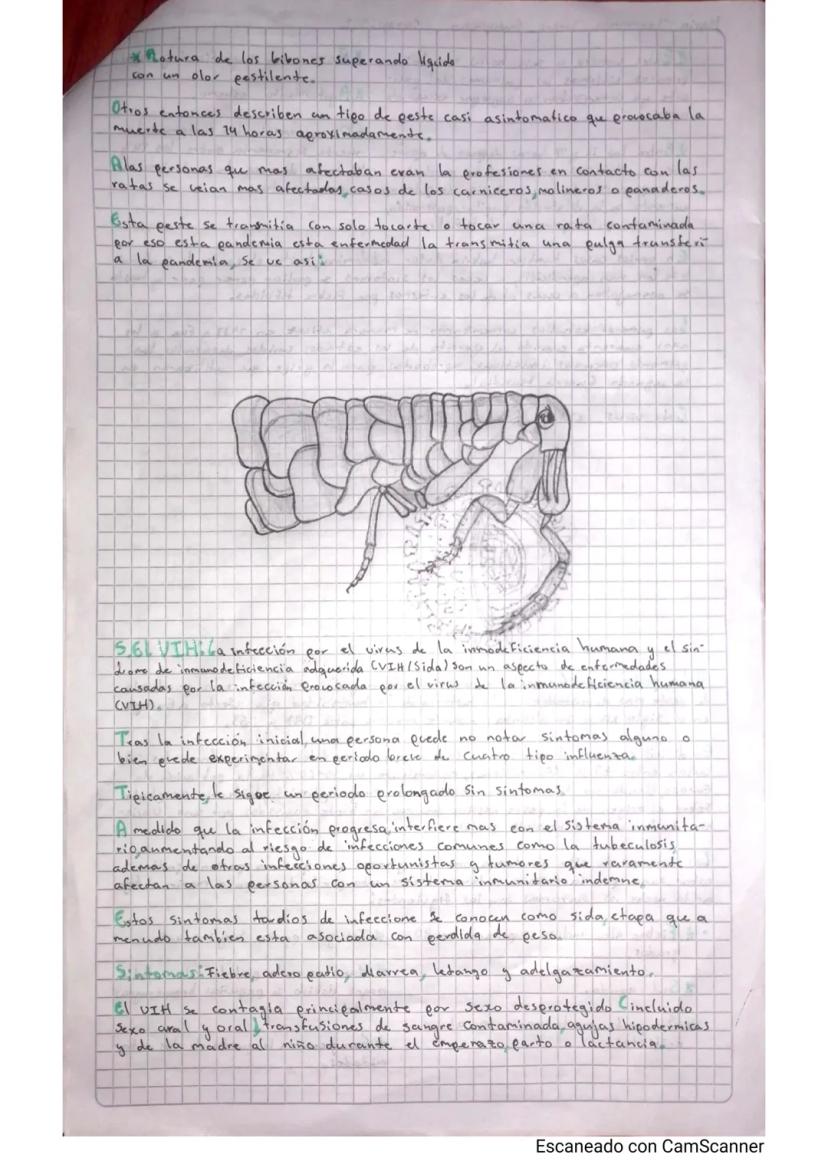 * Rotura de los bibones superando liquido
con un olor pestilente.
Otros entonces describen un tipo de peste casi asintomatico que provocaba la
muerte a las 14 horas aproximadamente.
A las personas que mas afectaban eran la profesiones en contacto con las
ratas se veian mas afectadas, casos de los carniceros, molineros o panaderos.
Esta peste se transmitia con solo tocarte o tocar una rata contaminada
por eso esta pandemia esta enfermedad la transmitia una pulga transferi
a la pandemia, se ve asi:
5.6. VIH: La infección por el virus de la inmodeficiencia humana y el sin-
drome de inmunodeficiencia adquerida (VIH/Sida) son un aspecto de enfermedades
causadas por la infección provocada por el virus de la inmunodeficiencia humana
(VIH).
Tras la infección inicial, una persona puede no notar sintomas alguno o
bien puede experimentar en periodo breve de cuatro tipo influenza.
Tipicamente, le sigue un periodo prolongado sin sintomas.
A medido que la infección progresa, interfiere mas con el sistema inmunita-
rio, aumentando al riesgo de infecciones comunes como la tubeculosis
ademas de otras infecciones oportunistas y tumores que raramente
afectan a las personas con un sistema inmunitario indemne.
Estos sintomas tardios de infeccione se conocen como sida, etapa que a
menudo tambien esta asociada con perdida de peso.
Sintomas: Fiebre, adero patio, diarrea, letango y adelgazamiento.
El VIH se contagia principalmente por sexo desprotegido (incluido
sexo anal y oral) transfusiones de sangre contaminada, agujas hipodermicas
y de la madre al niño durante el emperazo, parto o lactancia.
Escaneado con CamScanner